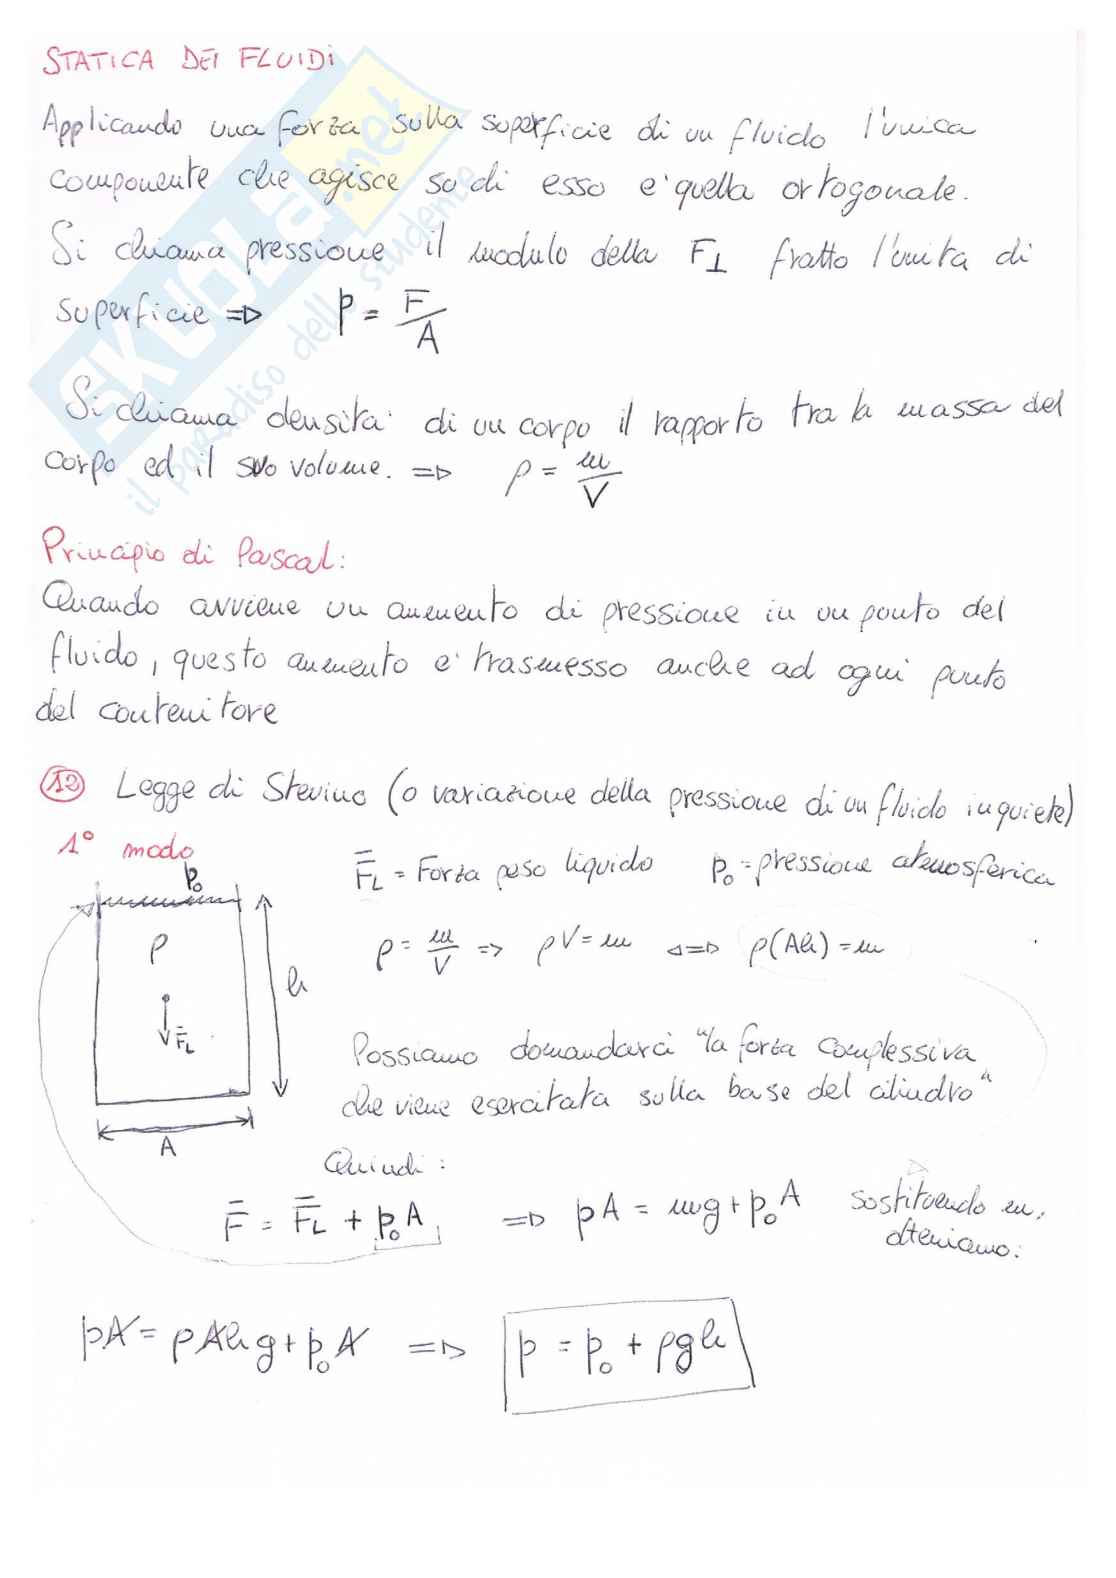 STATICA DEI FLUIDI
Applicando una forza sulla superficie di un fluido l'unica
componente che agisce su di esso e' quella ortogonale.
Si chiama pressione il modulo della F⊥ fratto l'unita di
superficie => p = F/A
Si chiama densita' di un corpo il rapporto tra la massa del
corpo ed il suo volume. => ρ = m/V
Principio di Pascal:
Quando avviene un aumento di pressione in un punto del
fluido, questo aumento e' trasmesso anche ad ogni punto
del contenitore
12 Legge di Stevino (o variazione della pressione di un fluido in quiete)
1° modo
p₀
F̄_L = Forza peso liquido p₀ = pressione atmosferica
ρ
ρ = m/V => ρV = m <=> ρ(Ah) = m
h
F̄_L
Possiamo domandarci "la forza complessiva
che viene esercitata sulla base del cilindro"
A
Quindi:
F̄ = F̄_L + p₀A => pA = mg + p₀A sostituendo m,
otteniamo:
pA = ρAhg + p₀A => p = p₀ + ρgh
SKUOLA.net
il paradiso dello studente